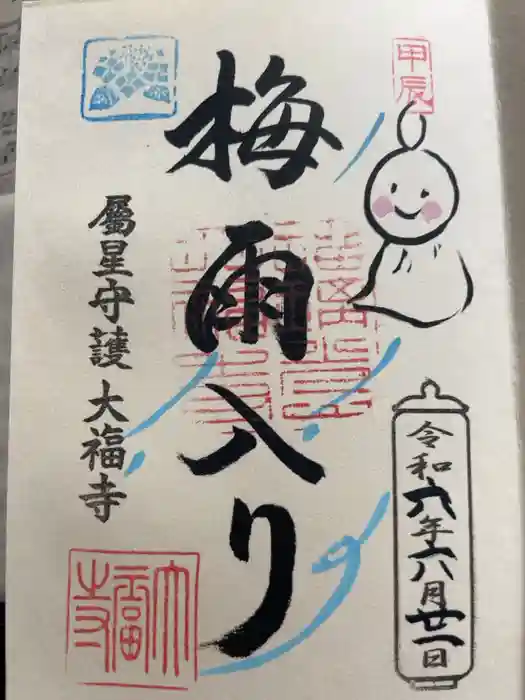 甲辰
梅雨入り
令和六年六月廿一日
屬星守護 大福寺
大福寺